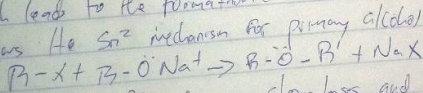 leads to the formation
the Sn² mechanism for primary alcohol
R-X + R-ÖNa⁺ → R-Ö-R' + NaX
and